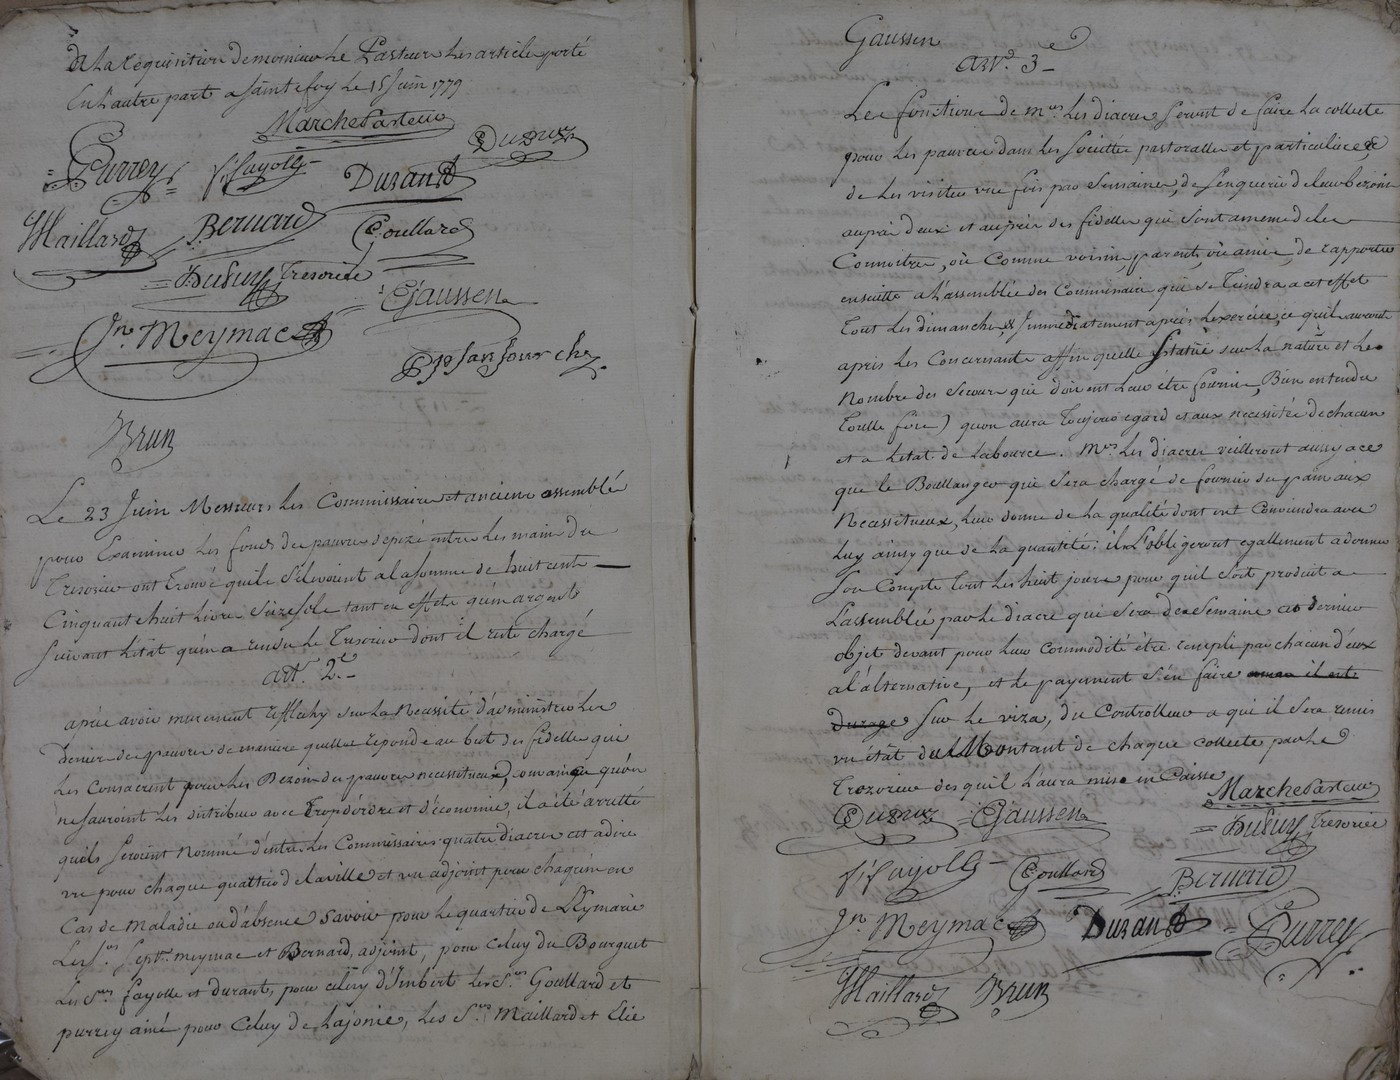 de La requisition de monsieur Le Pasteur Les articles porté
En L'autre part a Sainte foy Le 15 Juin 1779
Marche Pasteur
Purrey f.s fayolle Durand Dupuy
Maillard Bernard Goullard
Dupuy Tresorier
Gaussen
Jn. Meymac
P. Sanfourche
Brun
Le 23 Juin Messieurs Les Commissaires et anciens assemblé
pour Examiner Les fonds des pauvres depozé entre Les mains du
Tresorier ont trouvé quils S'élevoient a la somme de huit cents
Cinquante huit Livres Seize sols tant en effets qu'en argent
Suivant L'état qu'en a rendu Le Tresorier dont il reste chargé
art. 2e
aprés avoir murement reflechy sur La Necessité d'administrer Les
deniers des pauvres de maniere quelle reponde au but des fidelles qui
Les Consacrent pour Les Bezoins des pauvres necessiteux, convaincu qu'on
ne sauroint Les distribuer avec trop d'ordre et d'économie, il a été arretté
quils seroient Nommé d'entre Les Commissaires quatre diacres cest adire
un pour chaque quartier de la ville et un adjoint pour chaqu'un en
Cas de Maladie ou d'absence Savoir pour Le quartier de L'eymarie
Les Srs. Sept. meymac et Bernard, adjoint, pour Celuy du Bourguet
Les Srs. fayolle et durant, pour celuy d'Imbert Les Srs. Goullard et
purrey ainé pour Celuy de Lajonie, Les Srs. Maillard et Elie
Gaussen
art. 3
Les fonctions de mrs. Les diacres seront de faire La collecte
pour Les pauvres dans Les societtés pastoralles et particulieres, &
de Les visiter une fois par Semaine, de s'enquerir de leur bezoins
auprés d'eux et auprés des fidelles qui sont amemes de Les
Connoitre, où Comme voisins, parents, où amis, de rapporter
ensuitte a L'assemblée des Commissaires qui se tiendra a cet effet
Tout Les dimanches, & immediatement aprés L'exercice, ce quils auront
apris Les Concernants affin quelle Statue sur La nature et Le
Nombre des secours qui doivent Leur étre fournis, Bien entendu
Toutte fois) quon aura Toujours egard et aux necessités de chacun
et a Letat de La bource. Mrs. Les diacres veilleront aussy a ce
que le Boullanger qui Sera chargé de fournir du pain aux
Necessiteux, Leur donne de La qualité dont ont Conviendra avec
Luy ainsy que de La quantité; ils L'obligeront egallement a donner
Son Compte tout Les huit jours pour quil Soit produit a
L'assemblée par Le diacre qui Sera de Semaine ce dernier
objet devant pour Leur Commodité être rempli par chacun d'eux
a l'alternative, et Le payement s'en faire
sur Le viza, du Controlleur a qui il sera remis
un état du Montant de chaque collecte par Le
Trezorier des qu'il L'aura mise en Caisse
Marche Pasteur
Dupuy Gaussen Dupuy Tresorier
f.s fayolle Goullard Bernard
Jn. Meymac Durand Purrey
Maillard Brun